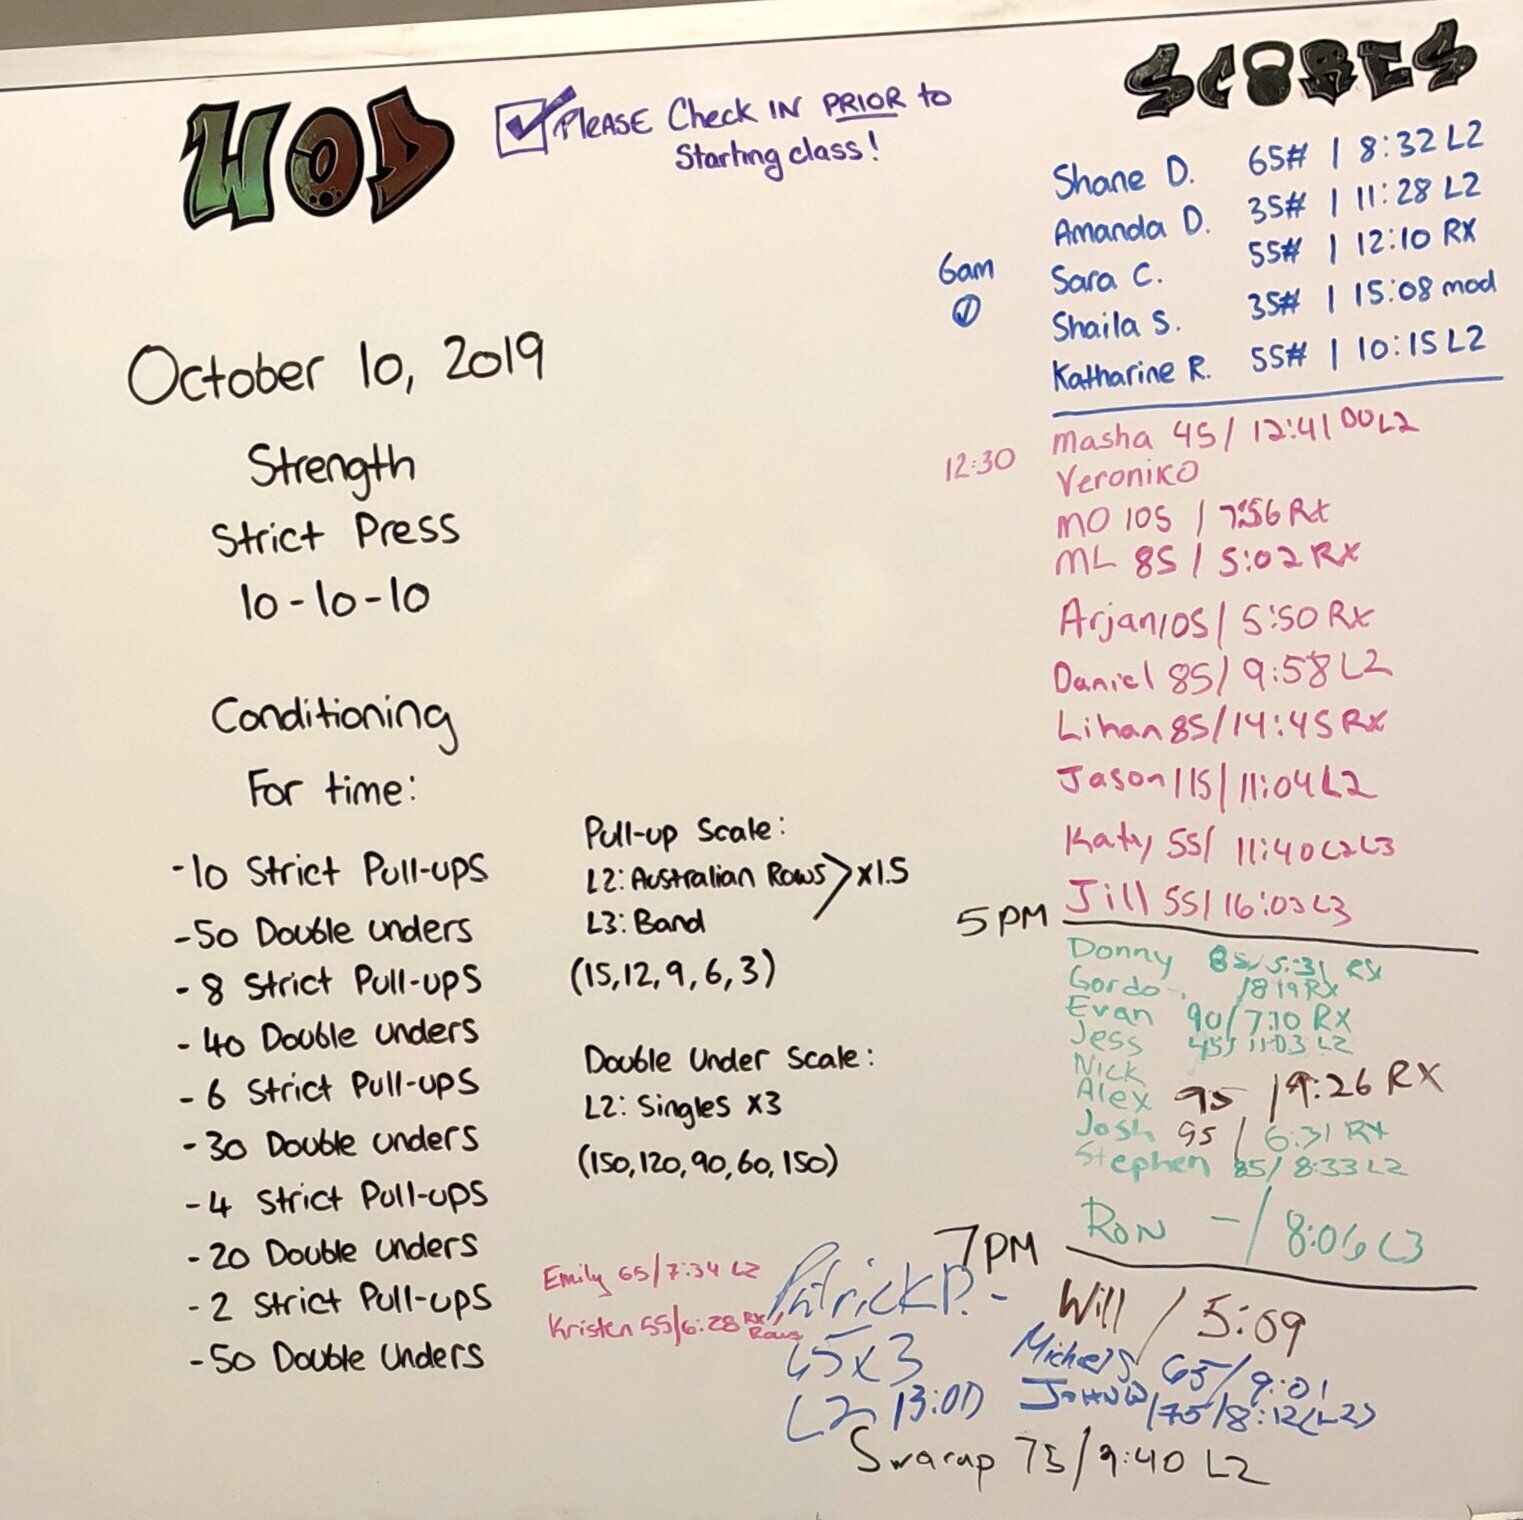 WOD
PLEASE Check IN PRIOR to
Starting class!
October 10, 2019
Strength
Strict Press
10-10-10
Conditioning
For time:
-10 Strict Pull-ups
-50 Double unders
-8 Strict Pull-ups
-40 Double unders
-6 Strict Pull-ups
-30 Double unders
-4 Strict Pull-ups
-20 Double unders
-2 Strict Pull-ups
-50 Double Unders
Pull-up Scale:
L2: Australian Rows > x1.5
L3: Band
(15,12,9,6,3)
Double Under Scale:
L2: Singles x3
(150,120,90,60,150)
Emily 65/7:34 L2
Kristen 55/6:28 Rx/Rows
SCORES
6am
Shane D. 65# | 8:32 L2
Amanda D. 35# | 11:28 L2
Sara C. 55# | 12:10 RX
Shaila S. 35# | 15:08 mod
Katharine R. 55# | 10:15 L2
12:30
Masha 45/ 12:41 DU L2
Veroniko
MO 105 / 7:56 Rx
ML 85 / 5:02 RX
Arjan 105/ 5:50 Rx
Daniel 85/ 9:58 L2
Lihan 85/14:45 Rx
Jason 115/ 11:04 L2
Katy 55/ 11:40 L2L3
Jill 55/16:03 L3
5 PM
Donny 85/5:31 RX
Gordo - /819 RX
Evan 90/7:10 RX
Jess 45/ 11:03 L2
Nick
Alex 95 /9:26 RX
Josh 95 / 6:31 RX
Stephen 85/ 8:33 L2
RON - / 8:06 L3
7 PM
Will / 5:09
Patrick P. -
45x3
L2 13:00
Michael S 65/9:01
JOHN W /75/8:12 (L2)
Swarup 75/9:40 L2